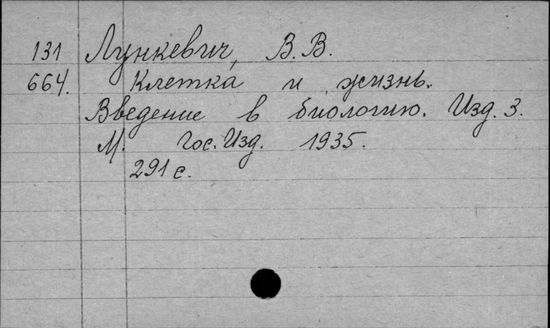 131 Лункевич, В.В.
664. Клетка и жизнь.
Введение в биологию. Изд. 3.
М. Гос. Изд. 1935.
291 с.